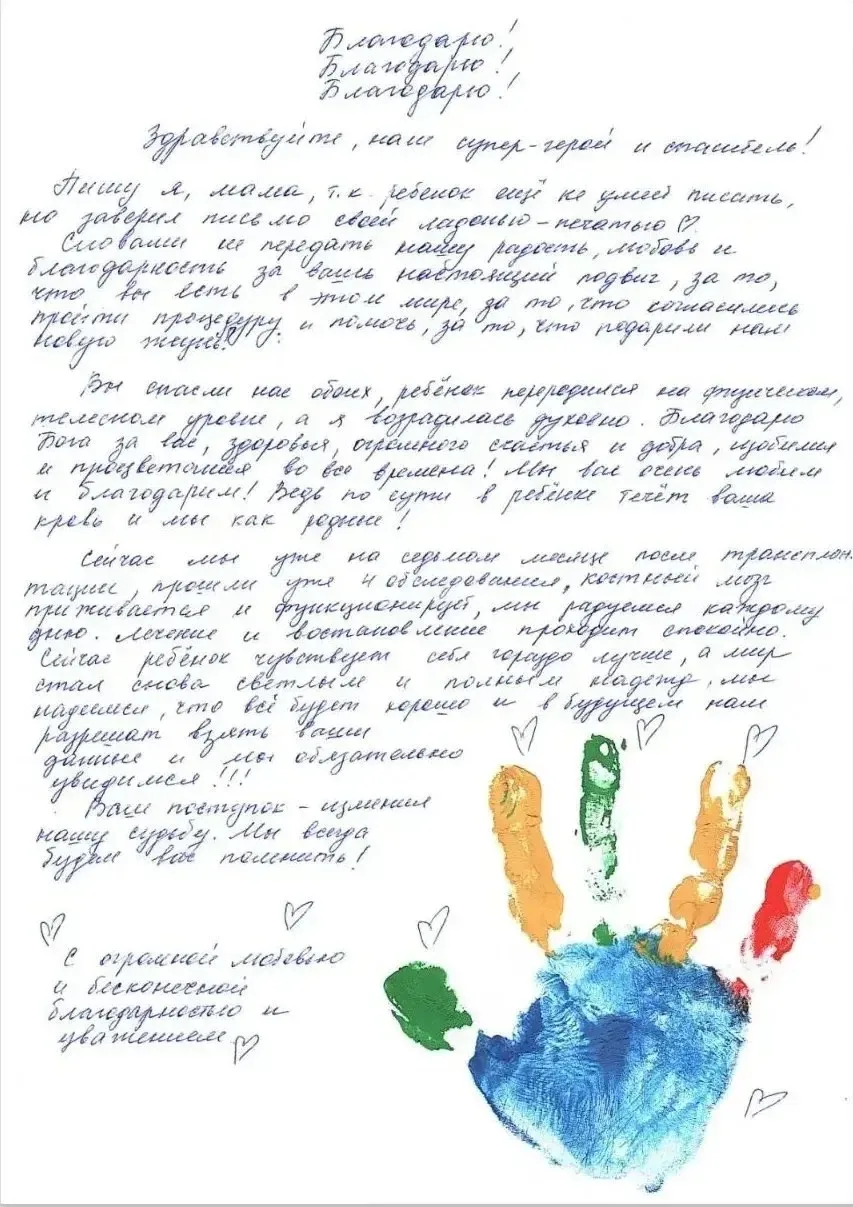 Благодарю!
Благодарю!
Благодарю!
Здравствуйте, наш супер-герой и спаситель!
Пишу я, мама, т.к. ребенок ещё не умеет писать,
но заверил письмо своей ладонью-печатью
Словами не передать нашу радость, любовь и
благодарность за ваш настоящий подвиг, за то,
что вы есть в этом мире, за то, что согласились
пройти процедуру и помочь, за то, что подарили нам
новую жизнь!
Вы спасли нас обоих, ребёнок переродился на физическом,
телесном уровне, а я возрадилась духовно. Благодарю
Бога за вас, здоровья, огромного счастья и добра, изобилия
и процветания во все времена! Мы вас очень любим
и благодарим! Ведь по сути в ребёнке течёт ваша
кровь и мы как родные!
Сейчас мы уже на седьмом месяце после трансплан-
тации, прошли уже 4 обследования, костный мозг
приживается и функционирует, мы радуемся каждому
дню. Лечение и востановление проходит спокойно.
Сейчас ребёнок чувствует себя гораздо лучше, а мир
стал снова светлым и полным надежд, мы
надеемся, что всё будет хорошо и в будущем нам
разрешат взять ваши
данные и мы обязательно
увидимся!!!
Ваш поступок - изменил
нашу судьбу. Мы всегда
будем вас помнить!
С огромной любовью
и бесконечной
благодарностью и
уважением